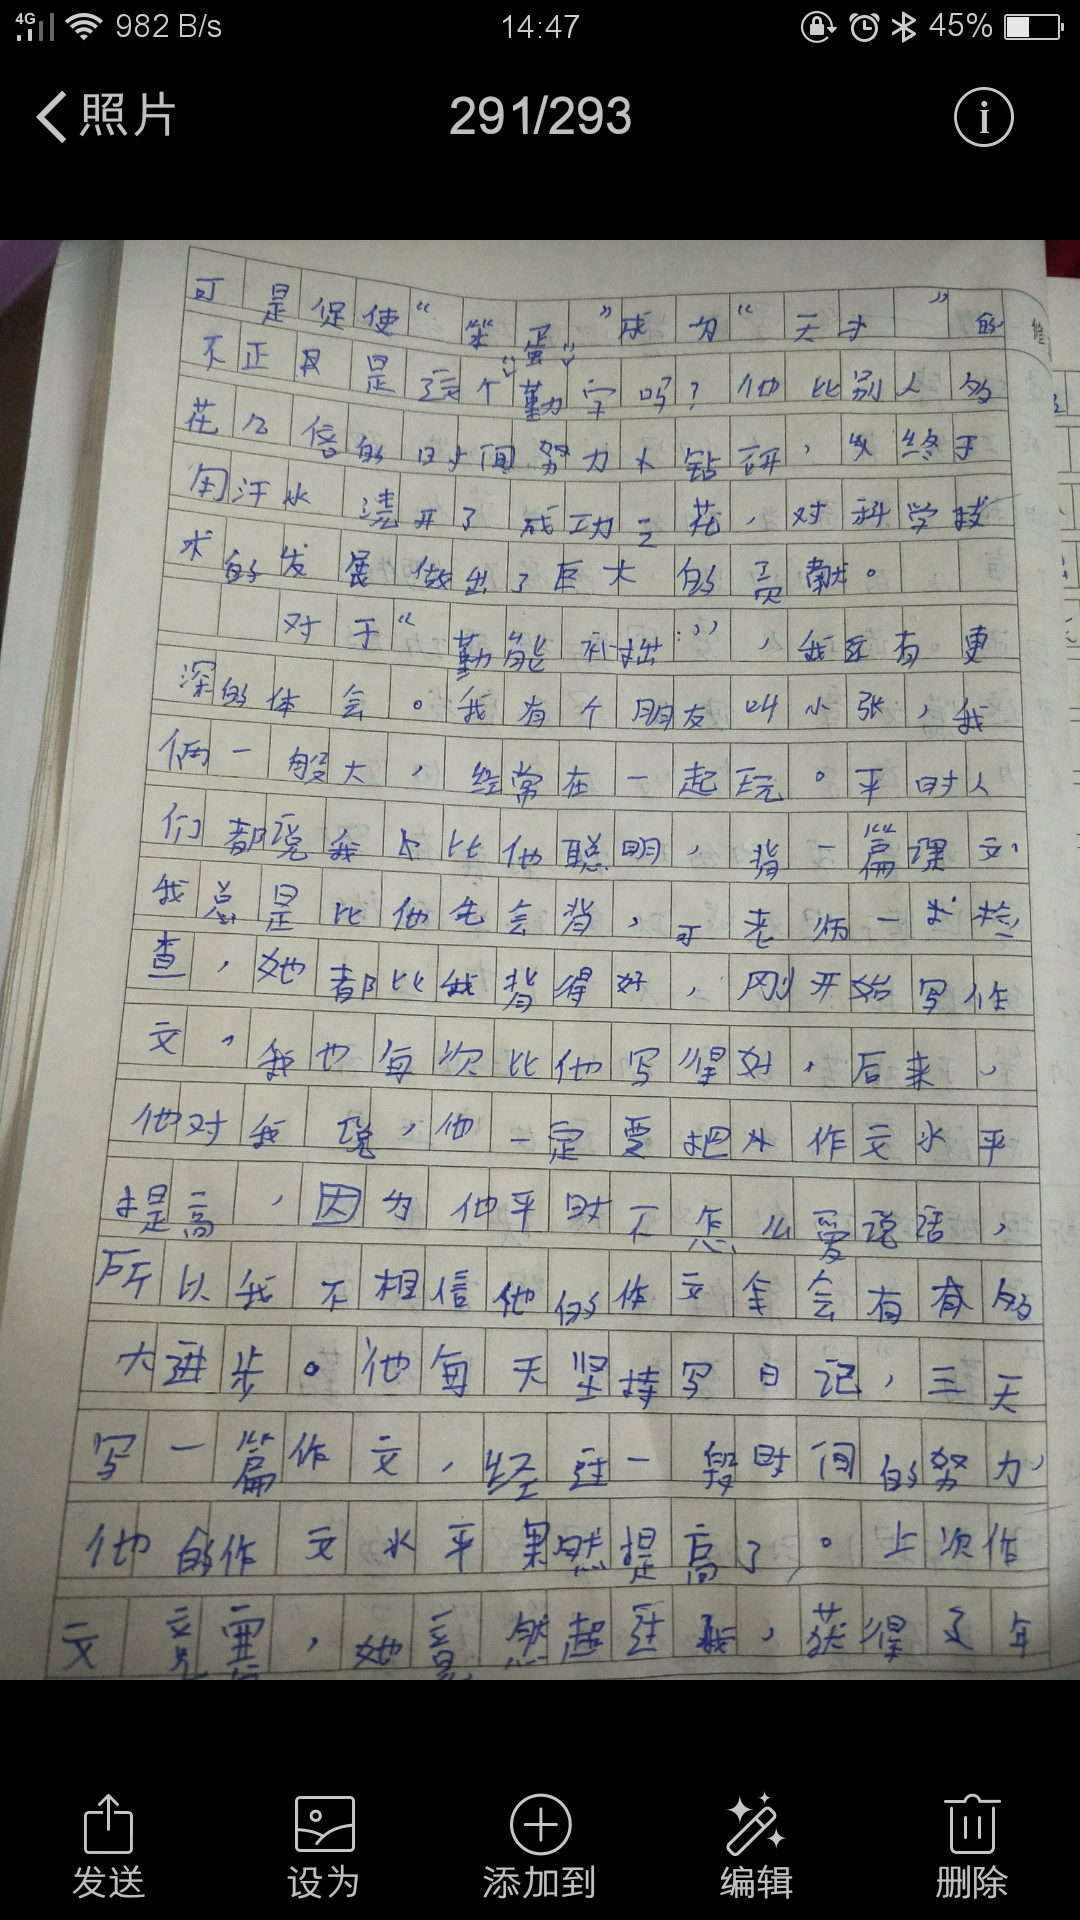 4G 982 B/s 14:47 45%
照片 291/293
可是促使“笨蛋”成为“天才”的
不正是这个“勤”字吗?他比别人多
花几倍的时间努力钻研,终于
用汗水浇开了成功之花,对科学技
术的发展做出了巨大的贡献。
对于“勤能补拙”,我还有更
深的体会。我有个朋友叫小张,我
俩一般大,经常在一起玩。平时人
们都说我比他聪明,背一篇课文,
我总是比他先会背,可老师一检
查,她都比我背得好,刚开始写作
文,我也每次比他写得好,后来,
他对我说,他一定要把作文水平
提高,因为他平时不怎么爱说话,
所以我不相信他的作文会有有多
大进步。他每天坚持写日记,三天
写一篇作文,经过一段时间的努力,
他的作文水平果然提高了。上次作
文竞赛,她竟然超过我,获得了年
发送 设为 添加到 编辑 删除